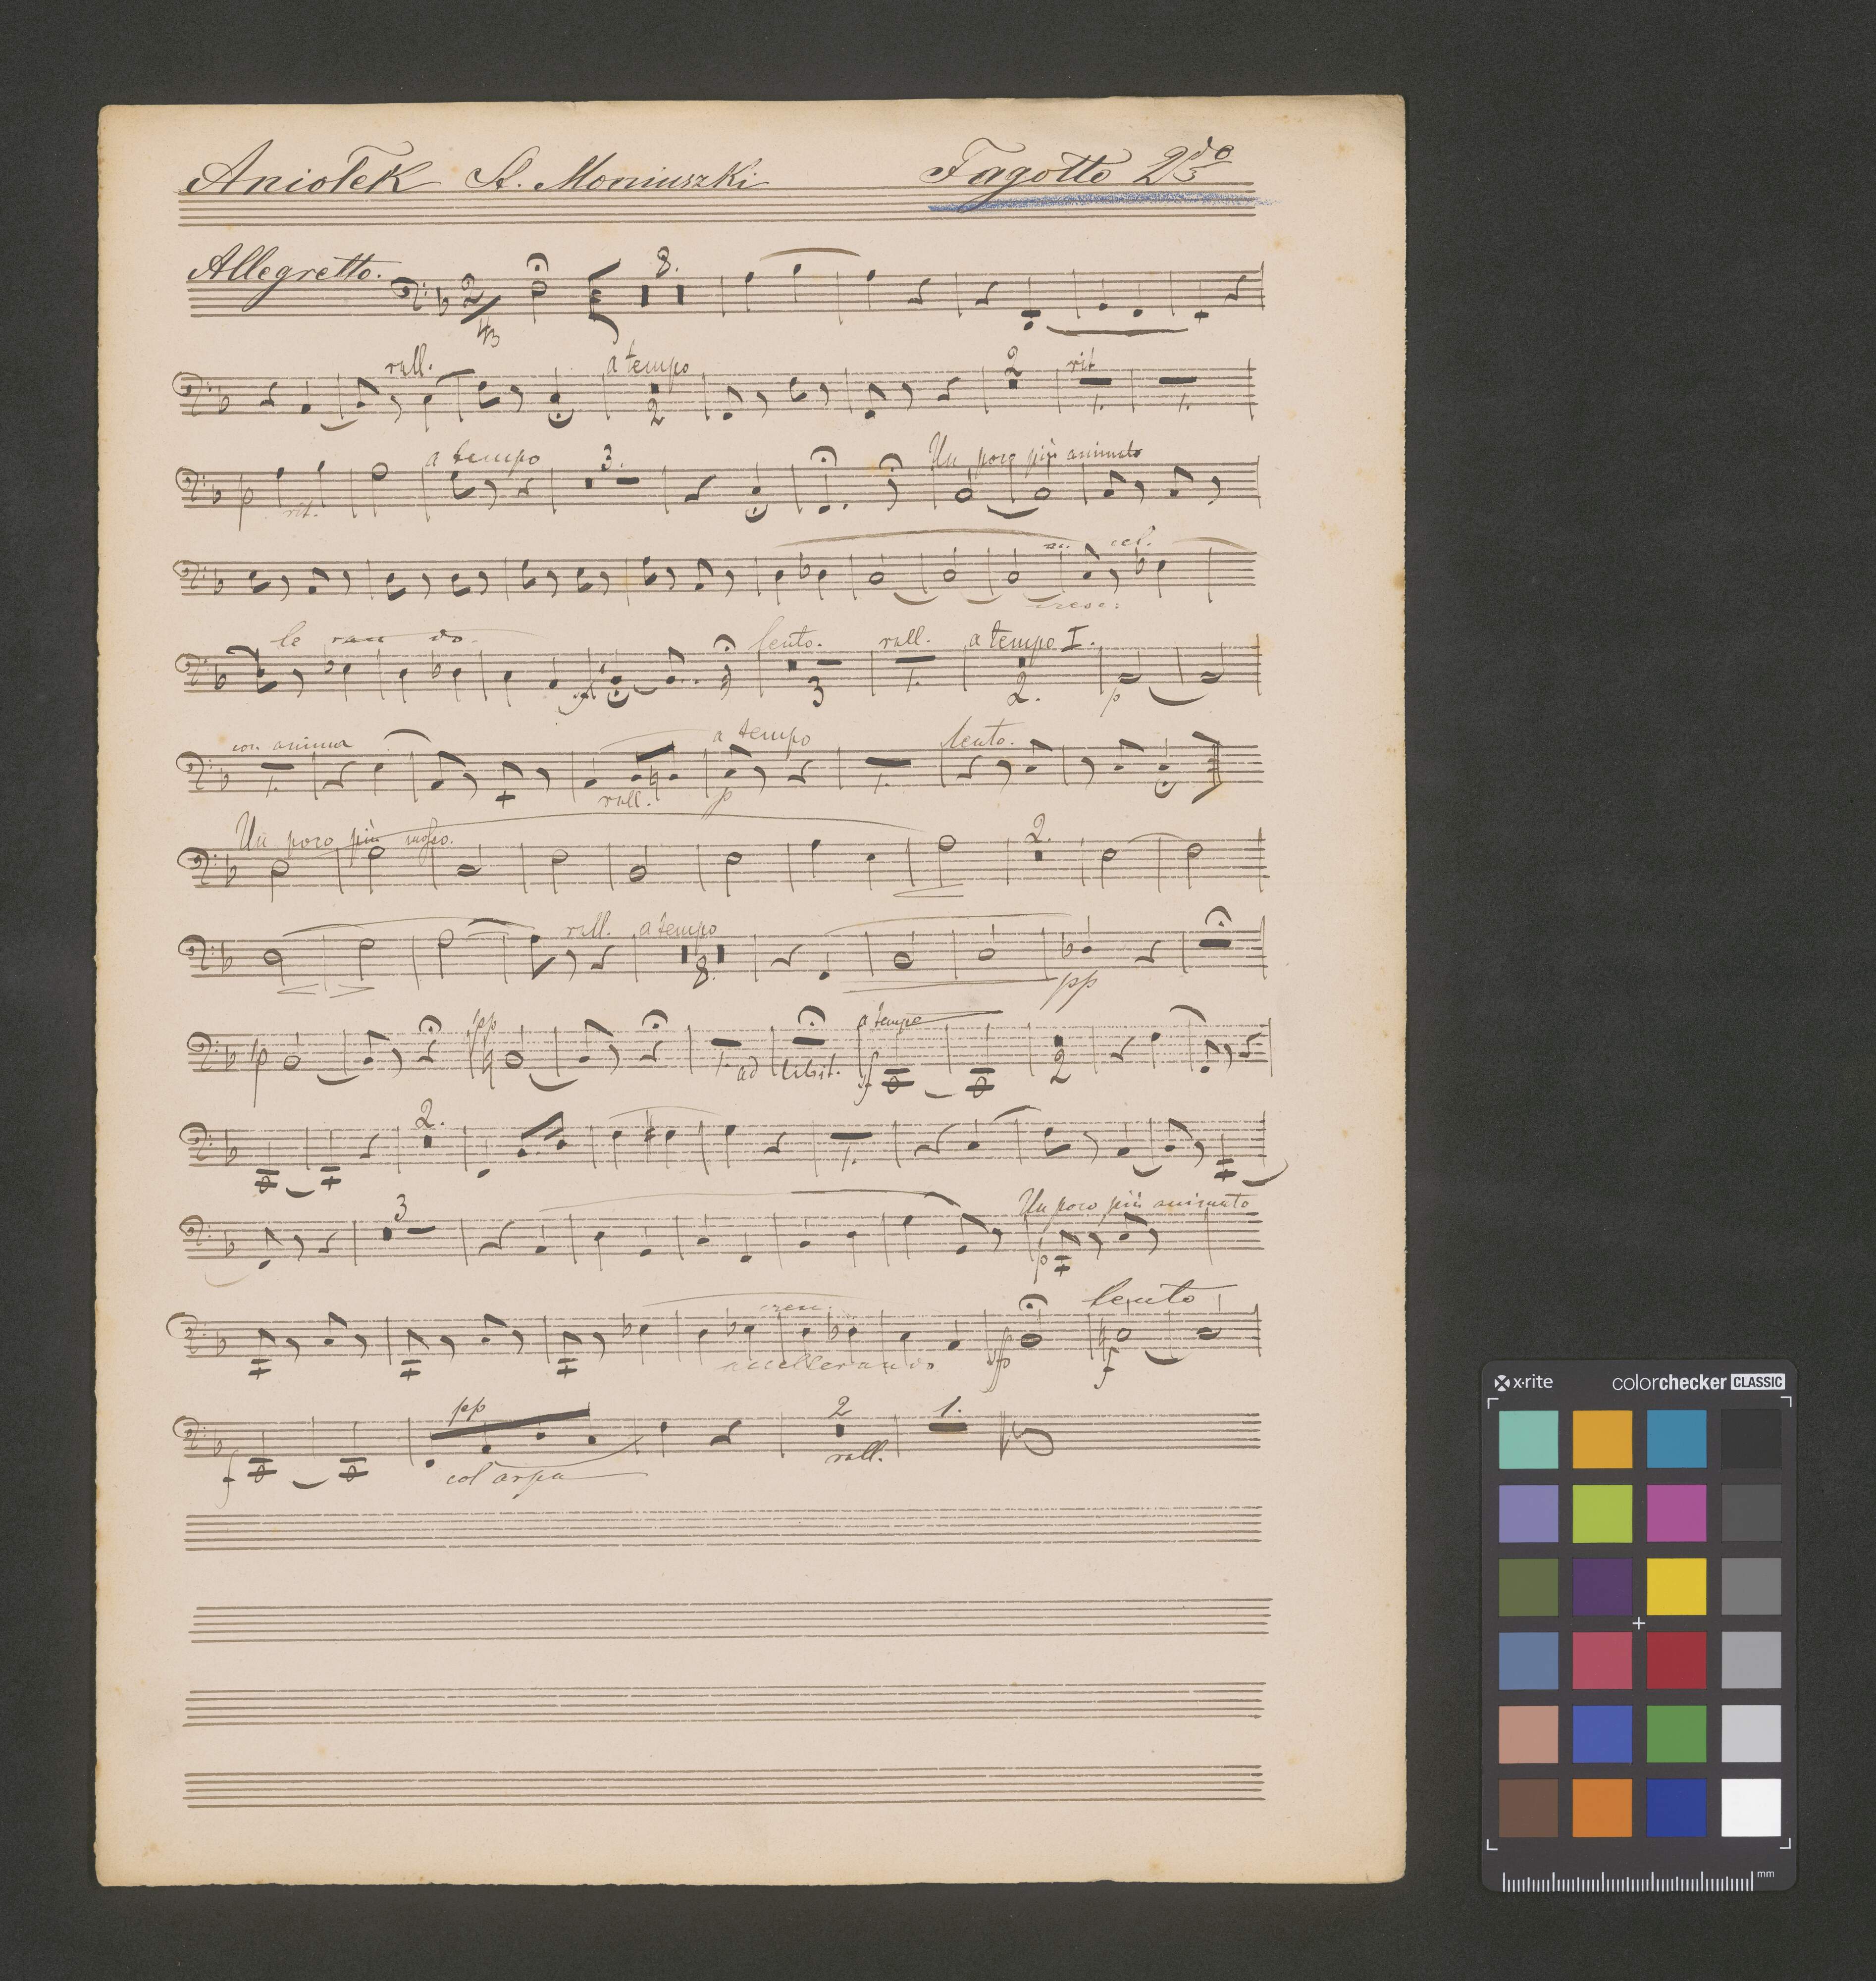 Aniołek St. Moniuszki Fagotto 2do
Allegretto. 2/4 8.
rall. a tempo 2 2 rit 1. 1.
p rit. a tempo 3. Un poco più animato
ac cel. cresc:
le ran do. lento. 3 rall. 1. a tempo I. 2. p
con anima 1. rall. a tempo p 1. lento.
Un poco più mosso. 2.
rall. a tempo 8. pp
p pp 1. ad libit. a tempo f 2
2. 1.
3 Un poco più animato p
cren. accellerando lento f
f pp col arpa 2 rall. 1.
x·rite colorchecker CLASSIC
mm